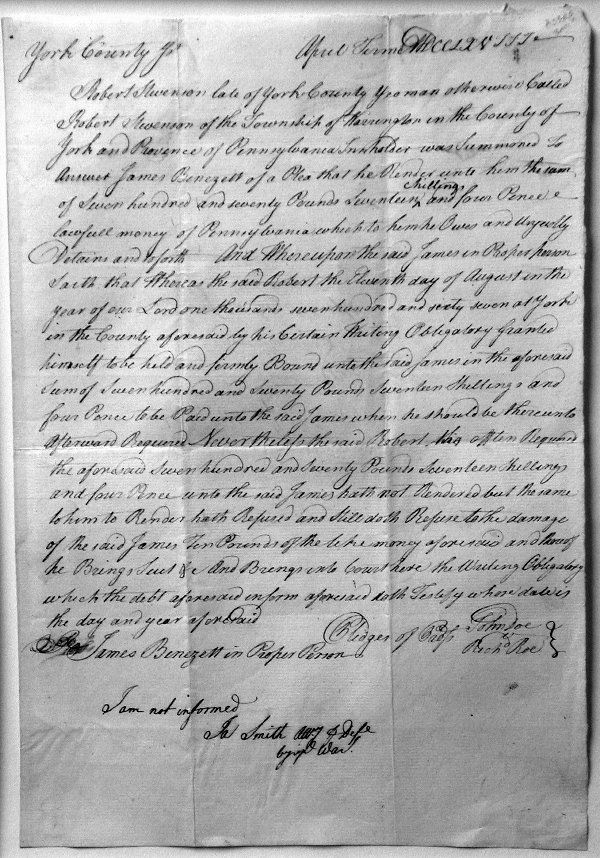 York County ss April Term MDCCLXVIII
Robert Stevenson late of York County Yeoman otherwise Called
Robert Stevenson of the Township of Warrington in the County of
York and Provence of Pennsylvania Innholder was Summoned to
Answer James Benezett of a Plea that he Render unto him the sum
of Seven hundred and seventy Pounds Seventeen Shillings and four Pence
lawfull money of Pennsylvania which to him he Owes and Unjustly
Detains and so forth And Whereupon the said James in Proper person
Saith that Whereas the said Robert the Eleventh day of August in the
year of our Lord one thousand seven hundred and sixty seven at York
in the County aforesaid by his Certain Writing Obligatory Granted
himself to be held and firmly Bound unto the said James in the aforesaid
Sum of Seven hundred and Seventy Pounds Seventeen Shillings and
four Pence to be Paid unto the said James when he should be thereunto
afterward Required Nevertheless the said Robert, tho often Required
the aforesaid Seven hundred and Seventy Pounds Seventeen Shillings
and four Pence unto the said James hath not Rendered but the same
to him to Render hath Refused and Still doth Refuse to the damage
of the said James Ten Pounds of the like money aforesaid and thereof
he Brings Suit &c And Brings into Court here the Writing Obligatory
which the debt aforesaid in form aforesaid doth Testefy whose date is
the day and year aforesaid
James Benezett in Proper Person
Pledges of Pros John Doe
& Richd Roe
I am not informed
Ja Smith Atty Deft
by Wart.